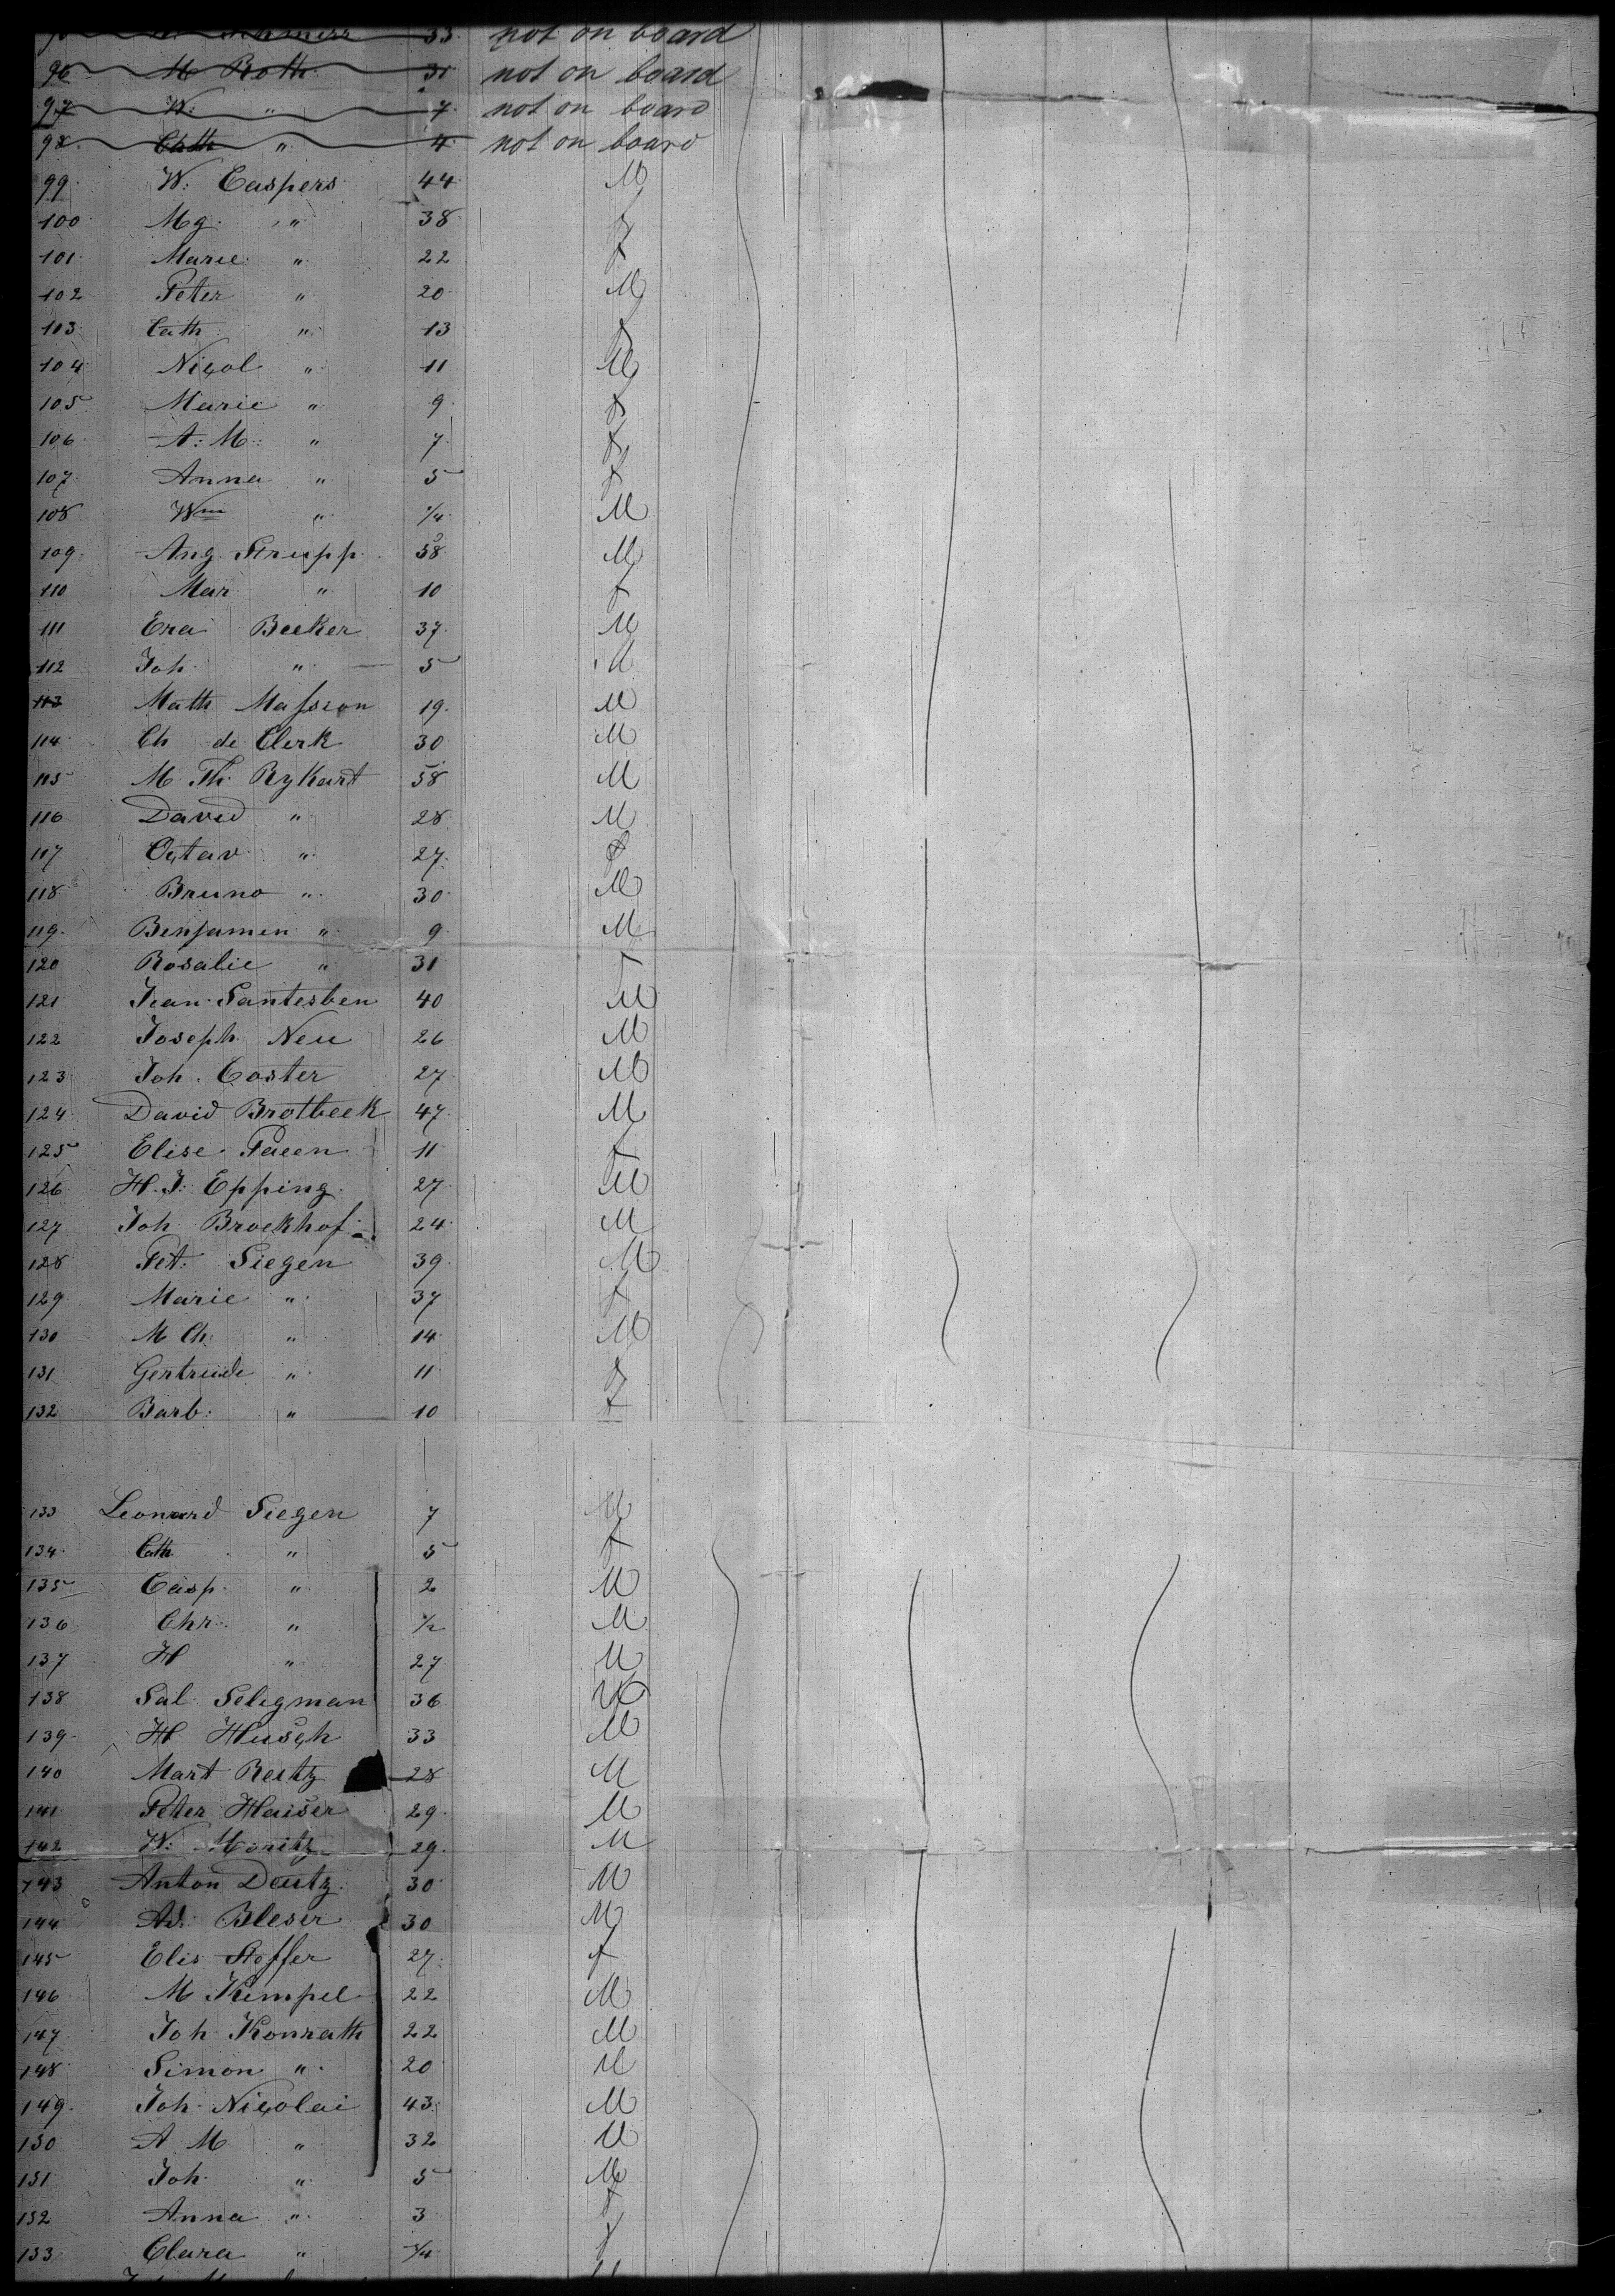 33 not on board
96 M Roth 31 not on board
97 W: " 7 not on board
98 Cath " 4 not on board
99 W: Caspers 44 M
100 Mg. " 38 f
101 Marie " 22 f
102 Peter " 20 M
103 Cath " 13 f
104 Nicol " 11 M
105 Marie " 9 f
106 A: M: " 7 f
107 Anna " 5 f
108 Wm " 1/4 M
109 Ang. Strupp 58 M
110 Mar " 10 f
111 Era Becker 37 M
112 Joh " 5 M
113 Math Masson 19 M
114 Ch de Clerk 30 M
115 M. Th. Rykart 58 M
116 David " 28 M
117 Octav " 27
118 Bruno " 30 M
119 Benjamen " 9 M
120 Rosalie " 31 f
121 Jean Santesben 40 M
122 Joseph Neu 26 M
123 Joh. Coster 27 M
124 David Brotbeek 47 M
125 Elise 11 f
126 H. J. Epping 27 M
127 Joh Broekhof 24 M
128 Pet. Siegen 39 M
129 Marie " 37 f
130 M Ch " 14 M
131 Gertrude " 11 f
132 Barb: " 10 f
133 Leonard Siegen 7 M
134 Cath " 5 f
135 Casp " 2 M
136 Chr " 1/2 M
137 H " 27 M
138 Sal Seligman 36 M
139 H Husch 33 M
140 Mart Reitz 28 M
141 Peter Haiser 29 M
142 W: Moritz 29 M
143 Anton Deutz 30 M
144 Ad. Bleser 30 M
145 Elis Stoffer 27 f
146 M Kimpel 22 M
147 Joh Konrath 22 M
148 Simon " 20 M
149 Joh Nicolai 43 M
150 A M " 32 M
151 Joh " 5 M
152 Anna " 3 f
153 Clara " 3/4 f